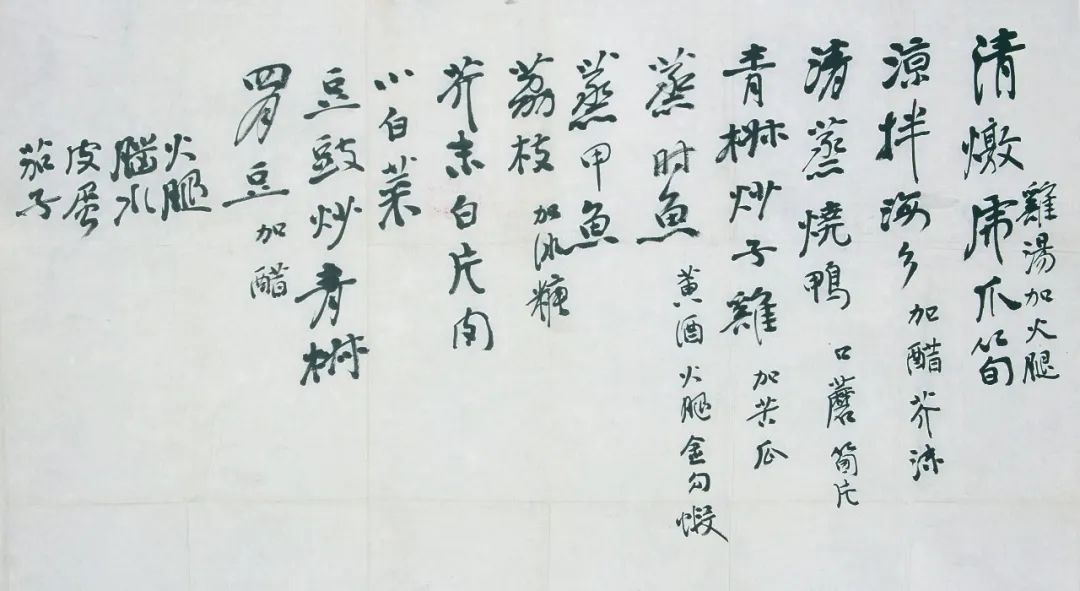 清燉虎爪筍
雞湯加火腿
涼拌海參 加醋芥沫
清蒸燒鴨 口蘑筍片
青椒炒子雞 加苦瓜
蒸时魚 黄酒火腿金勾蝦
蒸甲魚
荔枝 加冰糖
芥末白片肉
小白菜
豆豉炒青椒
四月豆 加醋
火腿
腦水
皮蛋
茄子